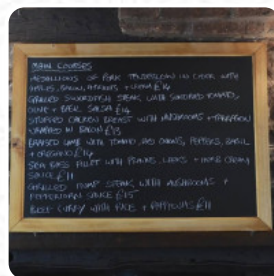 MAIN COURSES
MEDALLIONS OF PORK TENDERLOIN IN CIDER WITH
APPLES, BACON, + CREAM £14
GRILLED SWORDFISH STEAK WITH TOMATO,
OLIVE + BASIL SALSA £14
STUFFED CHICKEN BREAST WITH MUSHROOMS + TARRAGON
WRAPPED IN BACON £13
BRAISED LAMB WITH TOMATO, RED ONIONS, PEPPERS, BASIL
+ OREGANO £14
SEA BASS FILLET WITH PRAWNS, LEEKS + HERB CREAM
SAUCE £11
GRILLED RUMP STEAK WITH MUSHROOMS +
PEPPERCORN SAUCE £15
BEEF CURRY WITH RICE + POPPADOMS £11